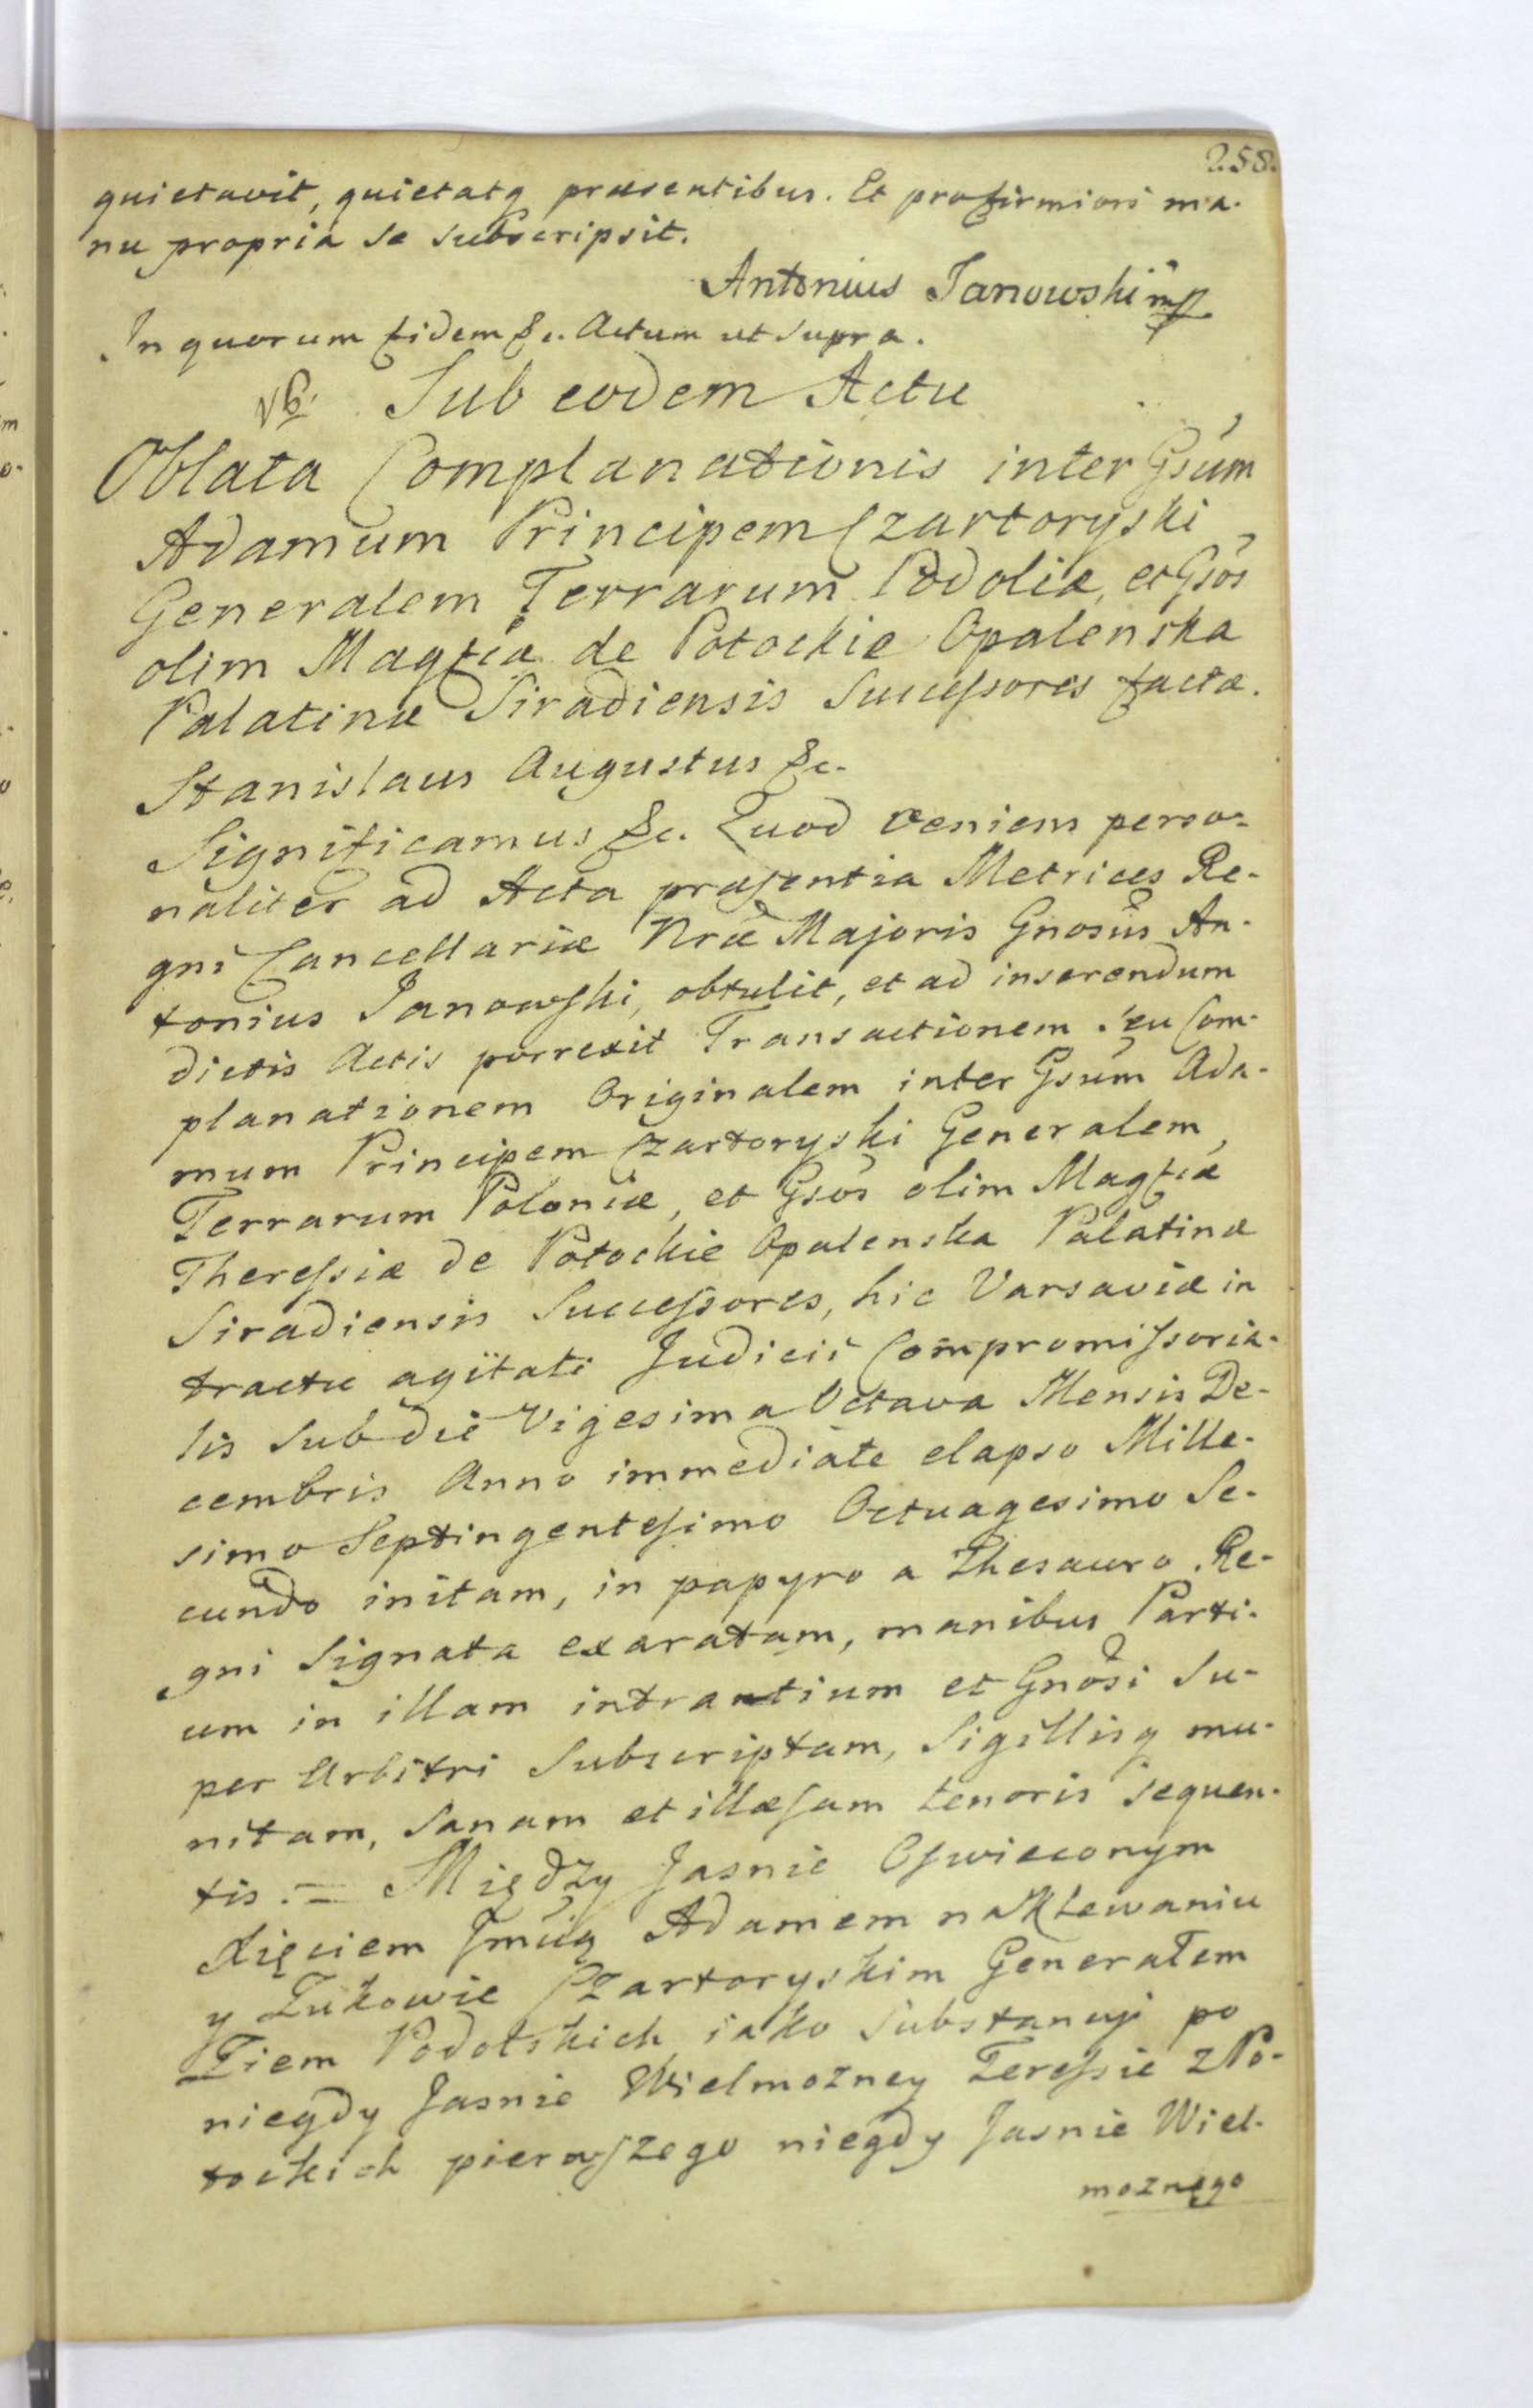 258.
quietavit, quietatq præsentibus. Et pro firmiori ma-
nu propria se subscripsit.
Antonius Janowski mp
In quorum fidem &c. Actum ut supra.
Sub eodem Actu
Oblata Complanationis inter Gsum
Adamum Principem Czartoryski
Generalem Terrarum Podoliæ, et Gsos
olim Magfcæ de Potockie Opalenska
Palatinæ Siradiensis Successores factæ.
Stanislaus Augustus &c.
Significamus &c. Quod veniens perso-
naliter ad Acta præsentia Metrices Re-
gni Cancellariæ Nræ Majoris Gnosus An-
tonius Janowski, obtulit, et ad inserendum
dictis Actis porrexit Transactionem seu Com-
planationem Originalem inter Gsum Ada-
mum Principem Czartoryski Generalem
Terrarum Poloniæ, et Gsos olim Magfcæ
Theressiæ de Potockie Opalenska Palatinæ
Siradiensis Successores, hic Varsaviæ in
tractu agitati Judicii Compromissoria-
lis sub die Vigesima Octava Mensis De-
cembris Anno immediate elapso Mille-
simo Septingentesimo Octuagesimo Se-
cundo initam, in papyro a Thesauro Re-
gni Signata exaratam, manibus Parti-
um in illam intrantium et Gnosi Su-
per Arbitri Subscriptam, Sigillisq mu-
nitam, Sanam et illæsam tenoris sequen-
tis. = Między Jasnie Oswieconym
Xięciem Jmcią Adamem na Klewaniu
y Zukowie Czartoryskim Generałem
Ziem Podolskich, iako Substancyi po
niegdy Jasnie Wielmozney Teressie z Po-
tockich pierwszego niegdy Jasnie Wiel-
moznego